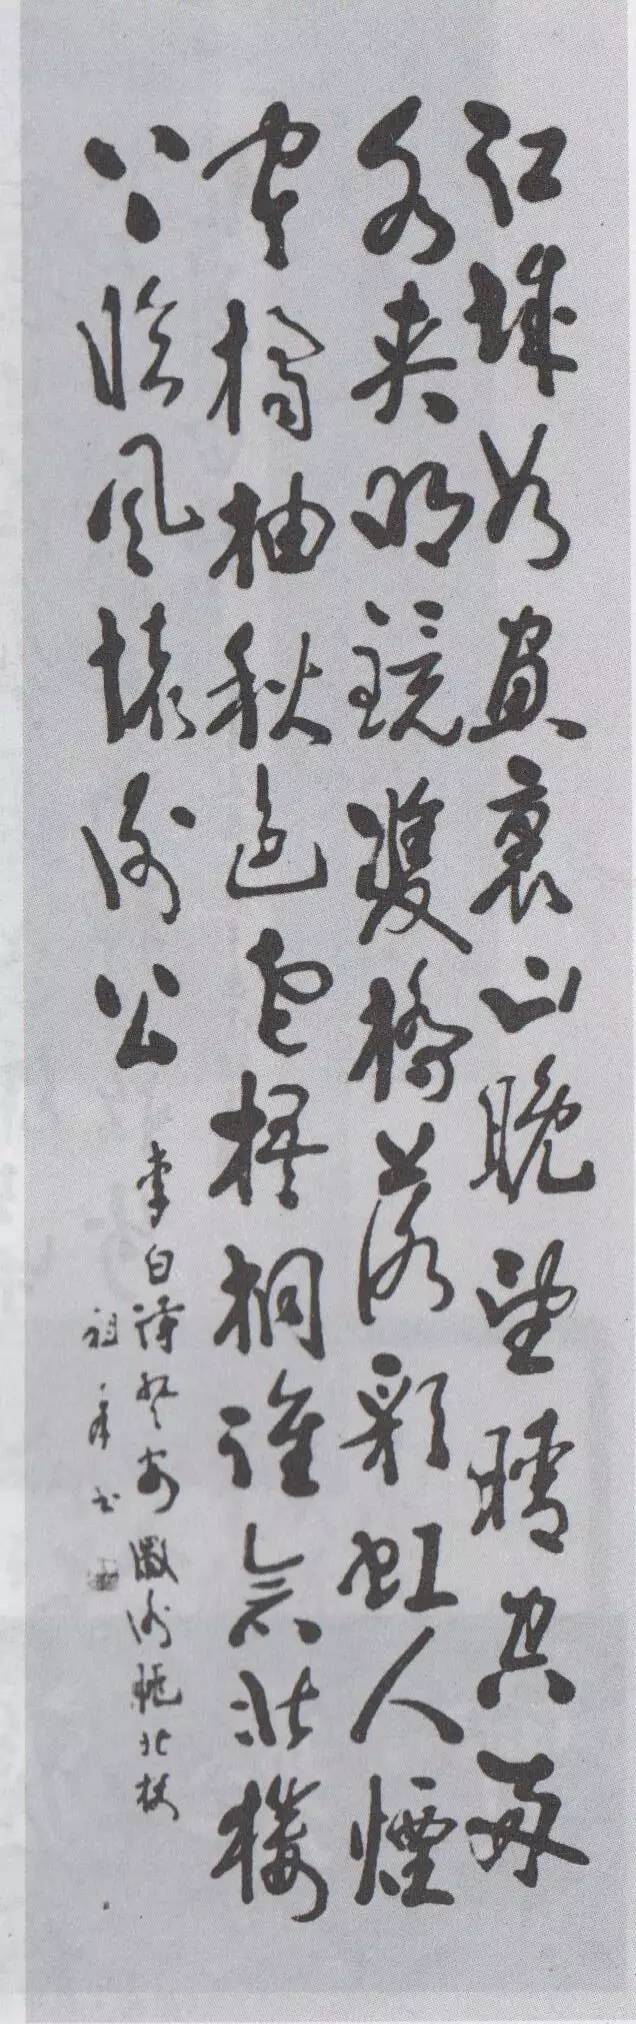 江城如畫裏山晚望晴空兩
水夾明鏡雙橋落彩虹人煙
寒橘柚秋色老梧桐誰念北樓
上臨風懷謝公
李白詩登安徽謝朓北樓
祖年书